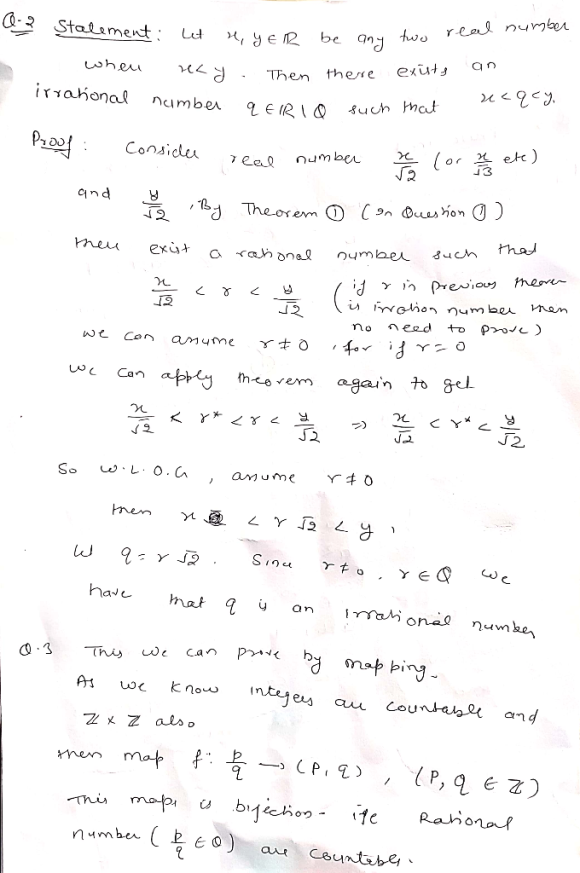 Q.2 Statement: Let x, y ∈ ℝ be any two real number
when x<y. Then there exists an
irrational number q ∈ ℝ\ℚ such that x<q<y.
Proof: Consider real number x/√2 (or x/√3 etc)
and y/√2, By Theorem ① (In Question ①)
there exist a rational number such that
x/√2 < r < y/√2 (if r in previous theorem
is irration number then
no need to prove)
we can assume r≠0, for if r=0
we can apply theorem again to get
x/√2 < r* < r < y/√2 ⇒ x/√2 < r* < y/√2
So W.L.O.G, assume r≠0
then x < r√2 < y,
let q = r√2. Since r≠0, r∈ℚ we
have that q is an irrational number
Q.3 This we can prove by mapping.
As we know integers are countable and
ℤ x ℤ also
then map f: p/q → (p, q), (p, q ∈ ℤ)
This maps is bijection- Rational
number (p/q ∈ ℚ) are countable.